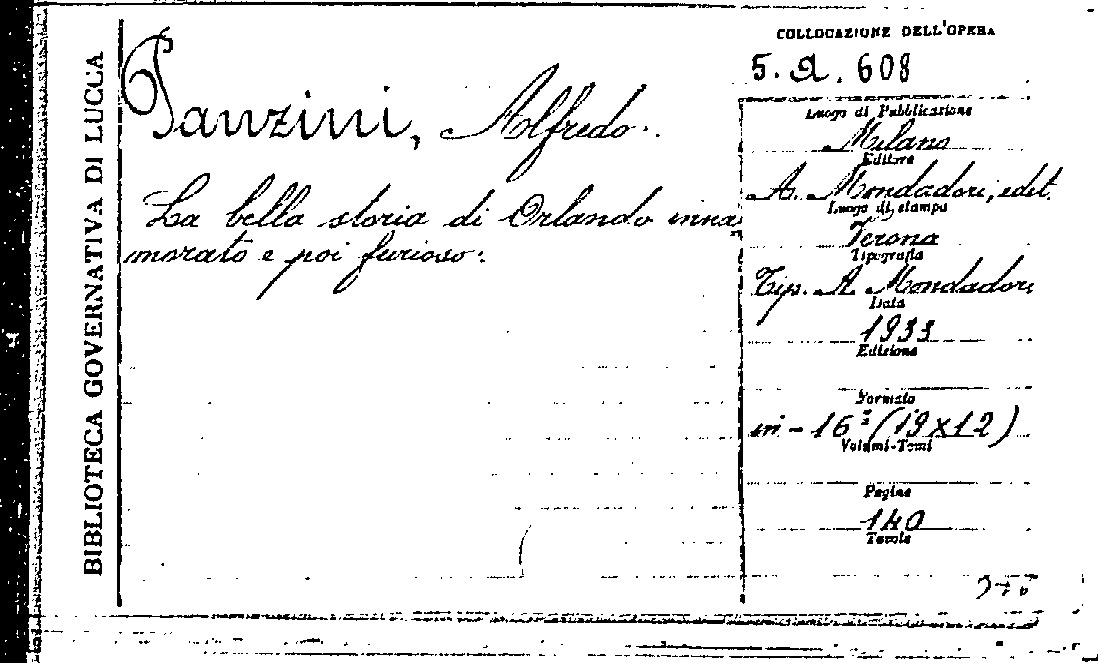 BIBLIOTECA GOVERNATIVA DI LUCCA
Panzini, Alfredo.
La bella storia di Orlando inna
morato e poi furioso.
COLLOCAZIONE DELL'OPERA
5. A. 608
Luogo di Pubblicazione
Milano
Editore
A. Mondadori, edit.
Luogo di stampa
Verona
Tipografia
Tip. A. Mondadori
Data
1933
Edizione
Formato
in-16° (19x12)
Volumi-Tomi
Pagine
140
Tavole